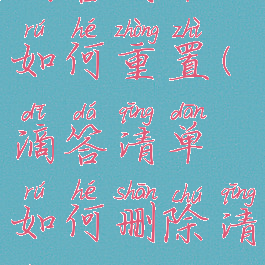 rú hé zhòng zhì
如何重置(
dī dá qīng dān
滴答清单
rú hé shān chú qīng
如何删除清